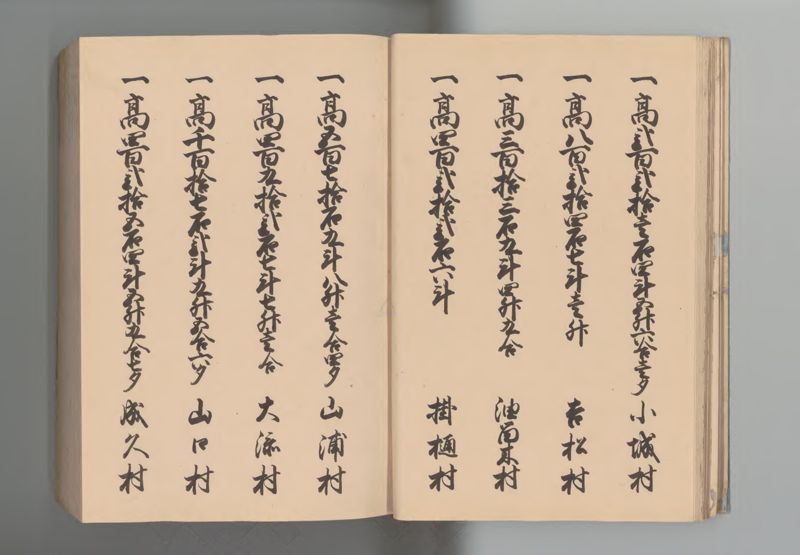 一高弐百弐拾壱石四斗五升六合壱夕 小城村
一高八百弐拾四石七斗壱升 吉松村
一高三百拾三石九斗四升九合 油留木村
一高四百弐拾弐石六斗 掛樋村
一高五百七拾石九斗八升壱合四夕 山浦村
一高四百九拾弐石七斗七升壱合 大添村
一高千百拾七石弐斗九升五合六夕 山口村
一高四百弐拾五石四斗五升九合七夕 成久村